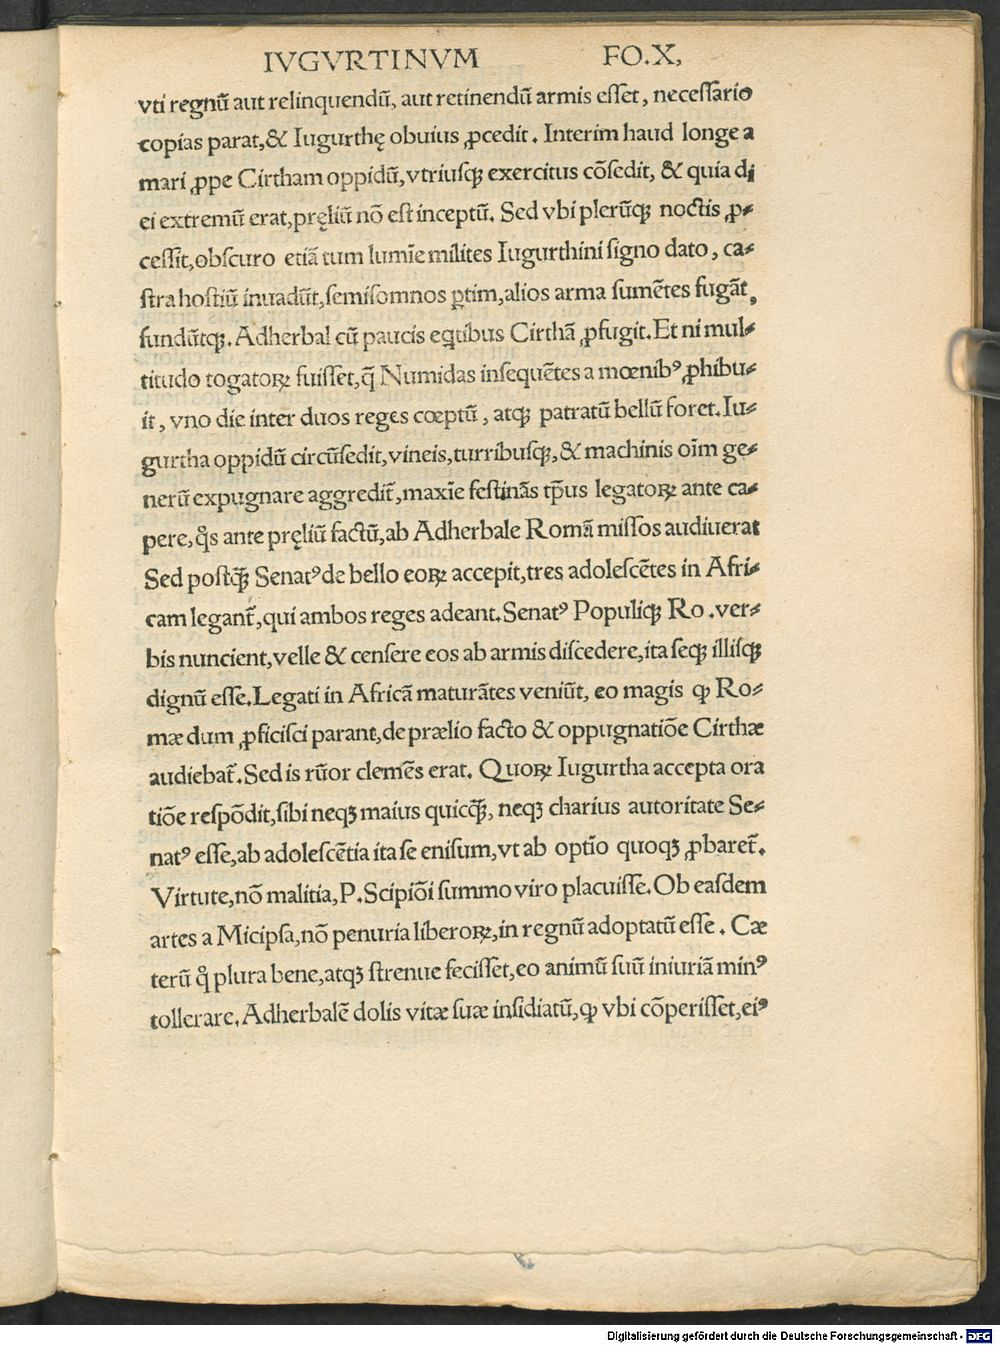 IVGVRTINVM FO.X,
vti regnū aut relinquendū, aut retinendū armis eſſet, neceſſario
copias parat,& Iugurthę obuius ꝓcedit. Interim haud longe a
mari ꝓpe Cirtham oppidū, vtriuſqꝫ exercitus cõſedit, & quia di
ei extremū erat, pręliū nõ eſt inceptū. Sed vbi plerūqꝫ noctis ꝓ⸗
ceſſit, obſcuro etiã tum lumīe milites Iugurthini ſigno dato, ca⸗
ſtra hoſtiū inuadūt, ſemiſomnos ꝑtim, alios arma ſumẽtes fugãt,
fundūtqꝫ. Adherbal cū paucis eqtibus Cirthã ꝓfugit. Et ni mul⸗
titudo togatoꝝ fuiſſet, q̃ Numidas inſequẽtes a mœnibꝰ ꝓhibu⸗
it, vno die inter duos reges cœptū, atqꝫ patratū bellū foret. Iu⸗
gurtha oppidū circūſedit, vineis, turribuſqꝫ, & machinis oīm ge⸗
nerū expugnare aggredit̃, maxīe feſtinãs tp̄us legatoꝝ ante ca⸗
pere, qͥs ante pręliū factū, ab Adherbale Romã miſſos audiuerat
Sed poſtqꝫ̃ Senatꝰ de bello eoꝝ accepit, tres adoleſcẽtes in Afri⸗
cam legant̃, qui ambos reges adeant. Senatꝰ Populiqꝫ Ro. ver⸗
bis nuncient, velle & cenſere eos ab armis diſcedere, ita ſeqꝫ illiſqꝫ
dignū eſſe. Legati in Africã maturãtes veniūt, eo magis ꝙ Ro⸗
mæ dum ꝓficiſci parant, de prælio facto & oppugnatiõe Cirthæ
audiebat̃. Sed is rūor clemẽs erat. Quoꝝ Iugurtha accepta ora
tiõe reſpõdit, ſibi neqꝫ maius quicqꝫ̃, neqꝫ charius autoritate Se⸗
natꝰ eſſe, ab adoleſcẽtia ita ſe eniſum, vt ab optīo quoqꝫ ꝓbaret̃.
Virtute, nõ malitia, P. Scipiõi ſummo viro placuiſſe. Ob eaſdem
artes a Micipſa, nõ penuria liberoꝝ, in regnū adoptatū eſſe. Cæ
terū qͥ plura bene, atqꝫ ſtrenue feciſſet, eo animū ſuū iniuriã minꝰ
tollerare. Adherbalẽ dolis vitæ ſuæ inſidiatū, ꝙ vbi cõperiſſet, eiꝰ
Digitalisierung gefördert durch die Deutsche Forschungsgemeinschaft - DFG